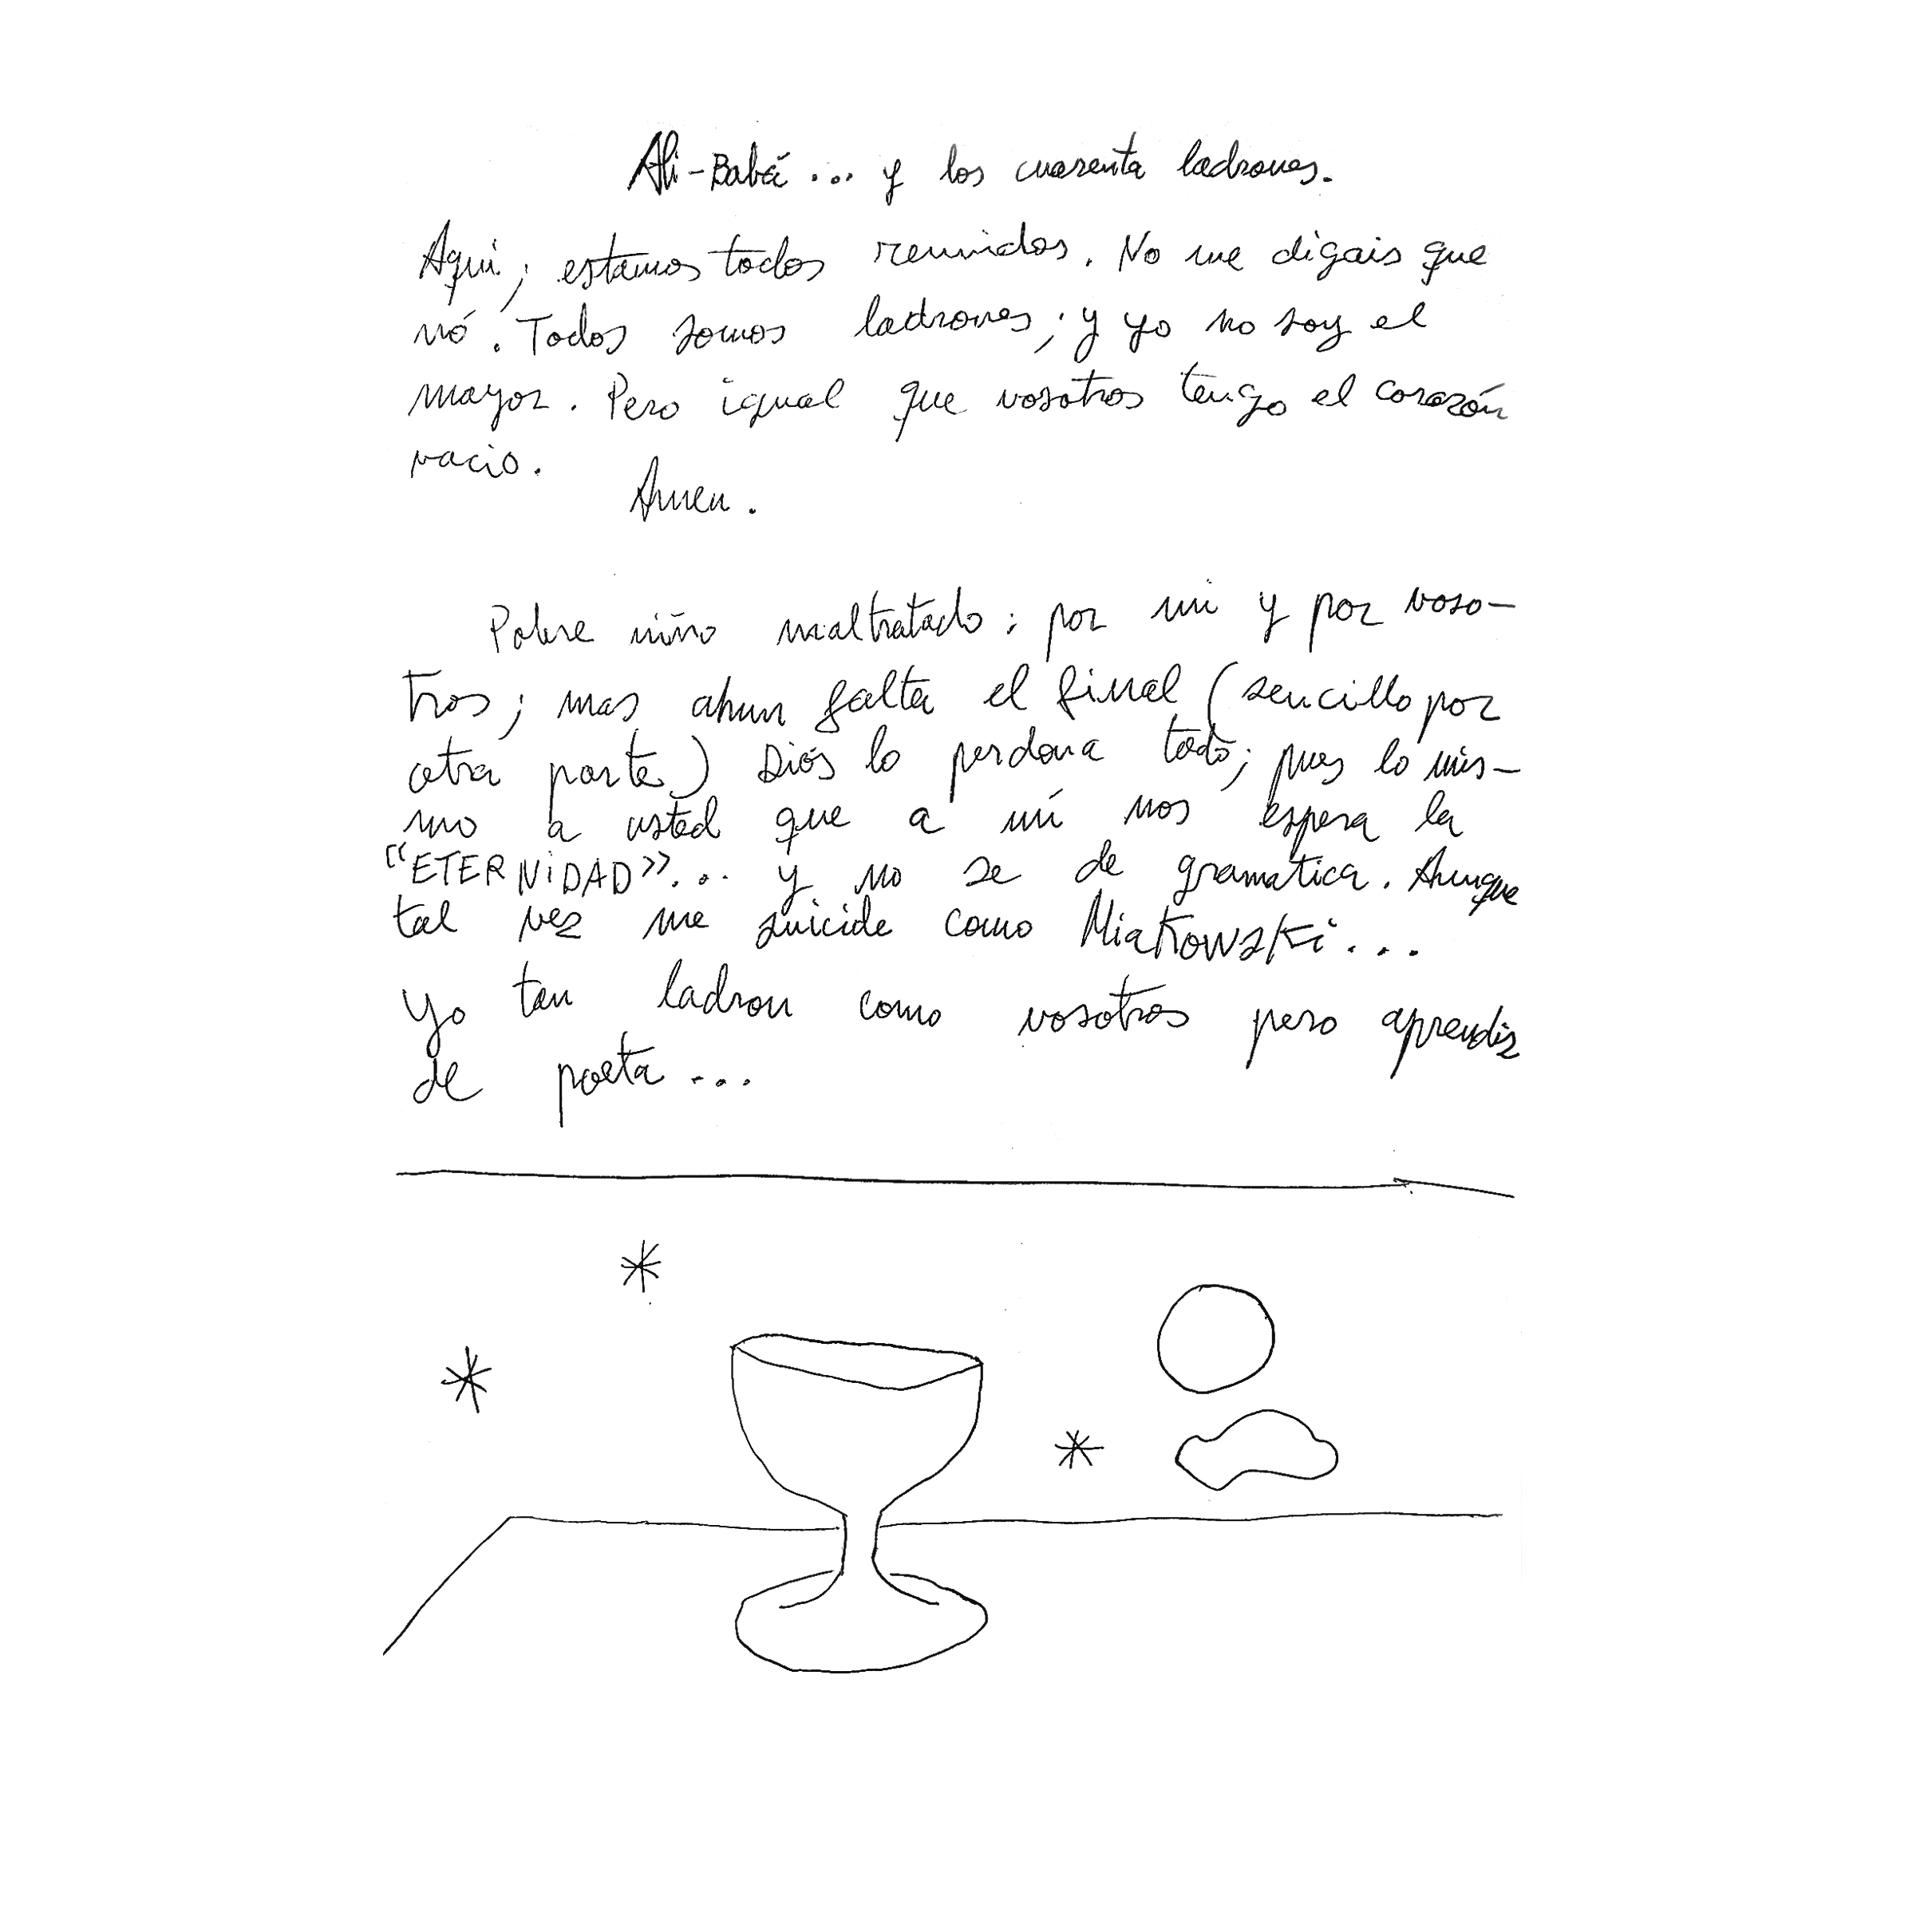 Ali-Babá ... y los cuarenta ladrones.
Aqui; estamos todos reunidos. No me digais que
nó. Todos somos ladrones; y yo no soy el
mayor. Pero igual que vosotros tengo el corazón
vacio.
Amen.
Pobre niño maltratado; por mi y por voso-
tros; mas ahun falta el final (sencillo por
otra parte) Diós lo perdona todo; pues lo mis-
mo a usted que a mí nos espera la
"ETERNiDAD"... y no se de gramatica. Aunque
tal vez me suicide como MiaKowsKi...
Yo tan ladron como vosotros pero aprendiz
de poeta...